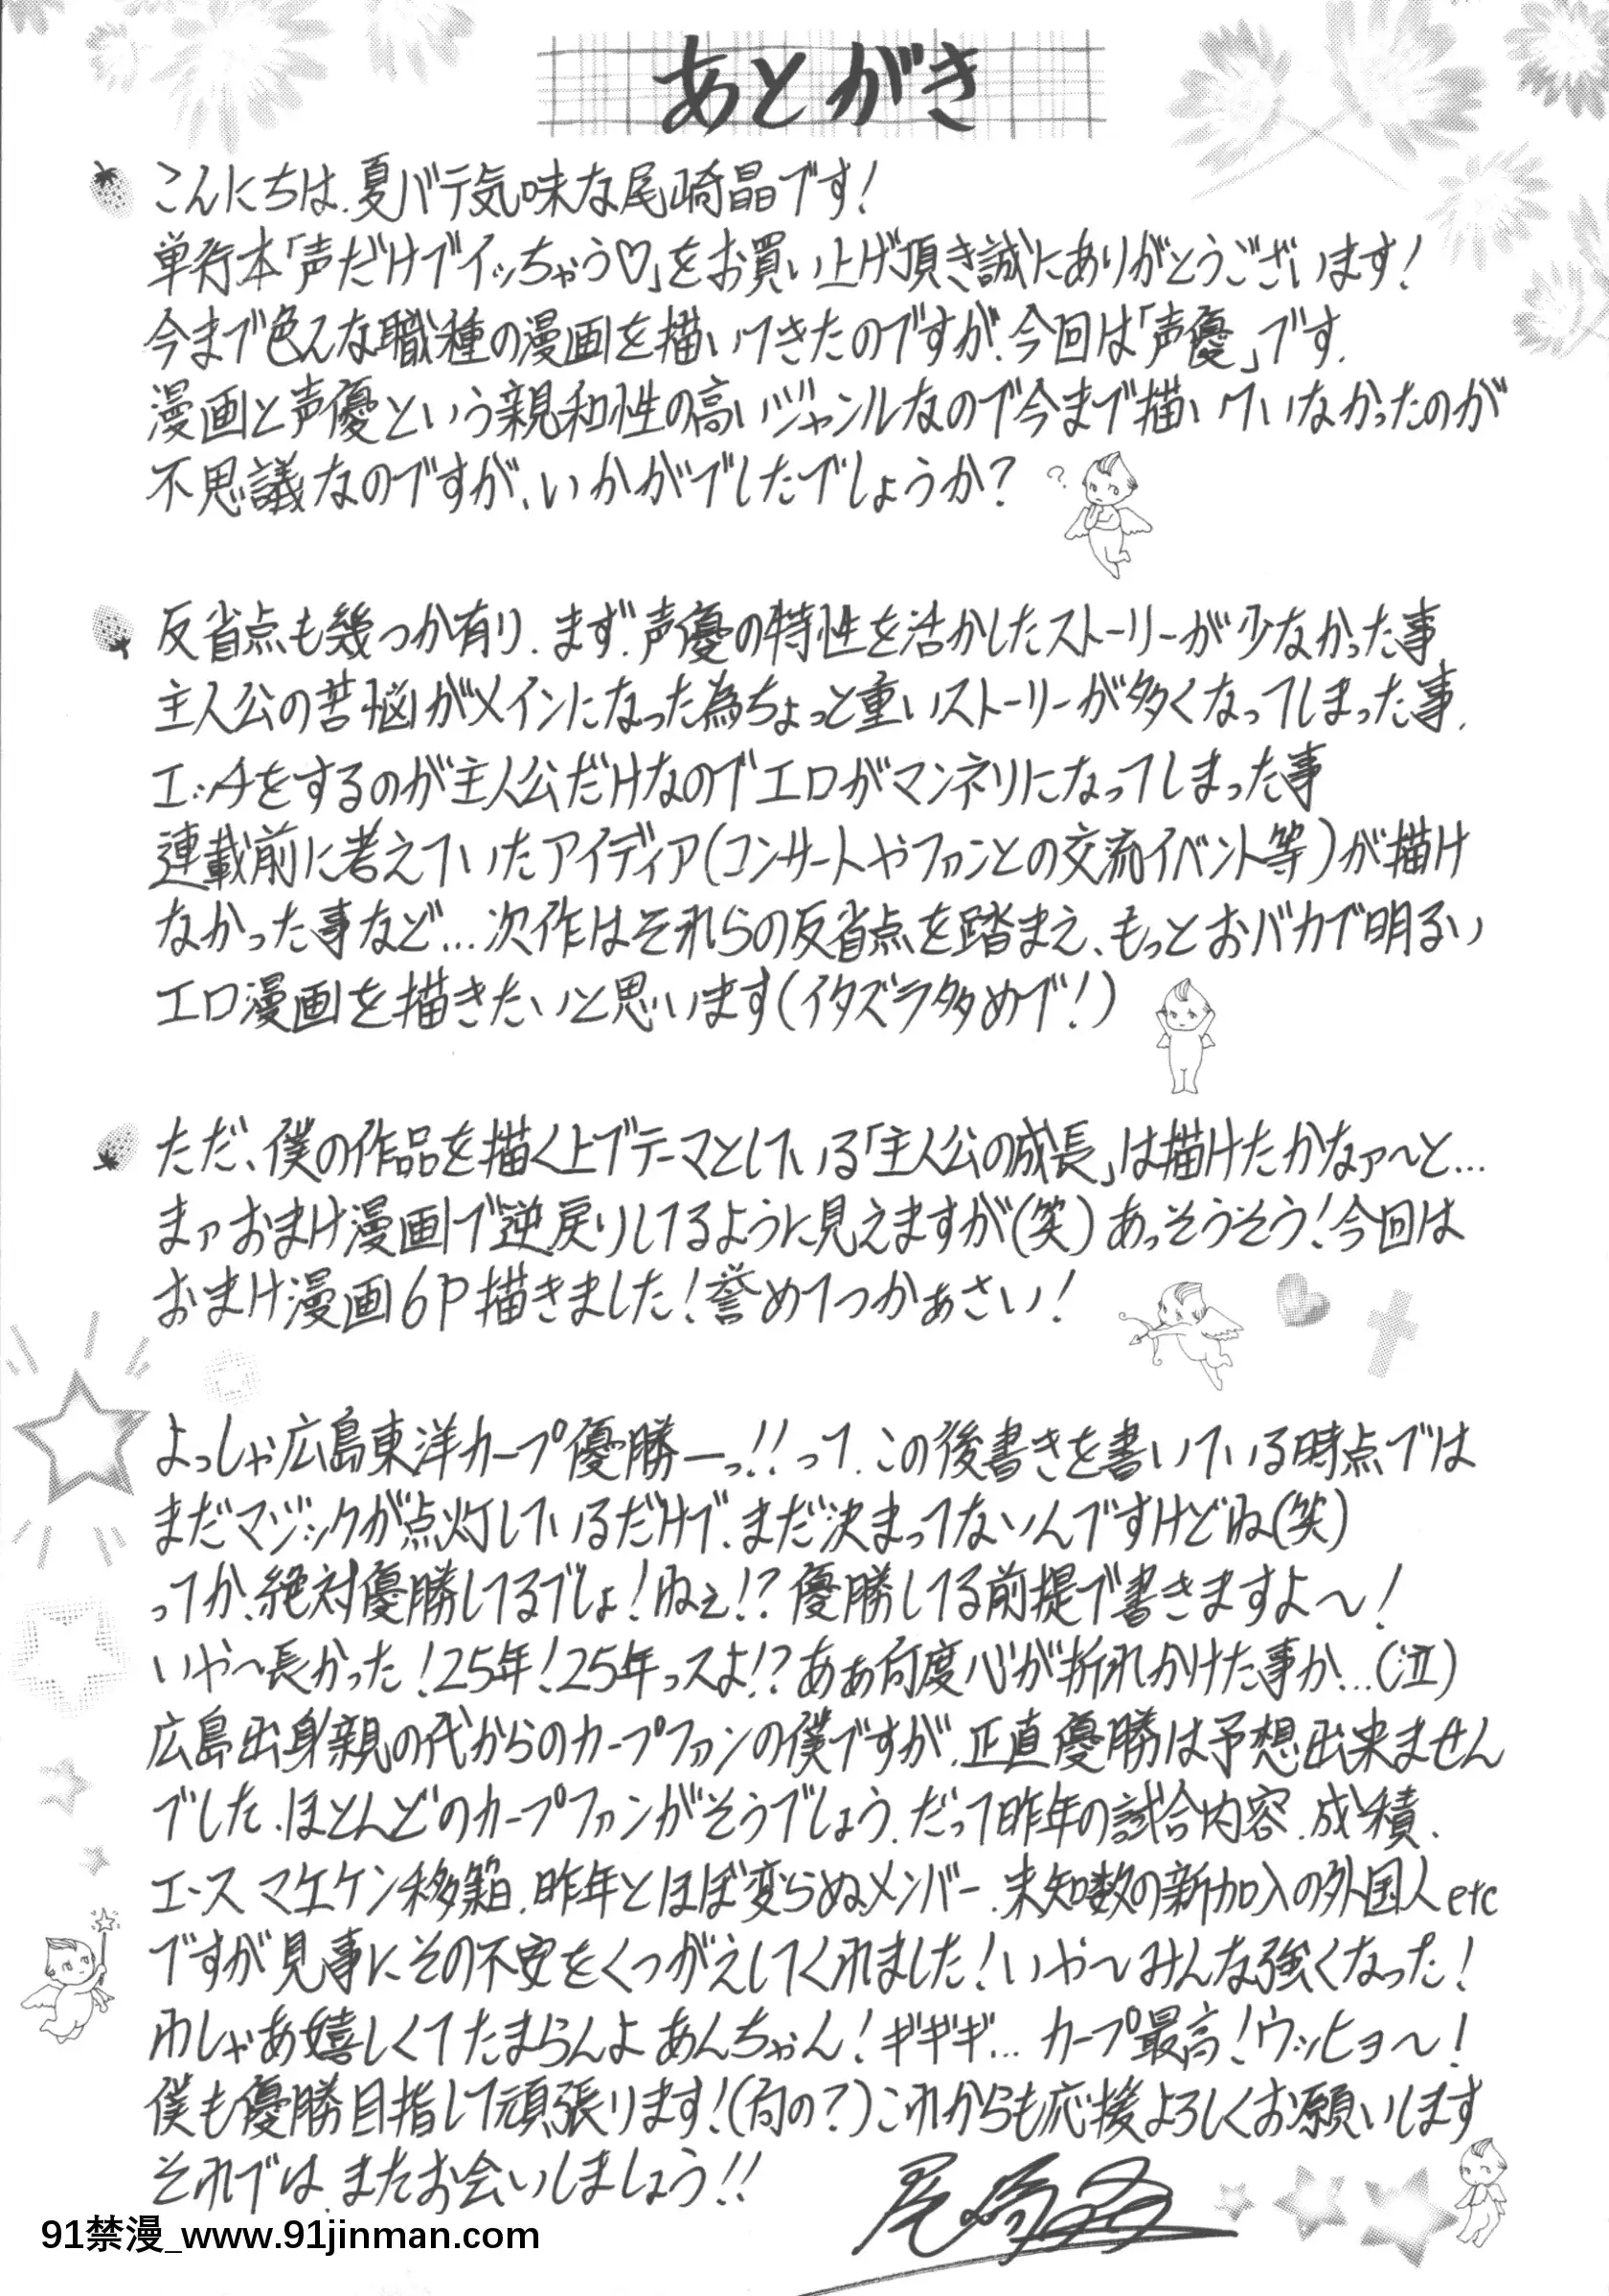 あとがき
こんにちは、夏バテ気味な尾崎晶です!
単行本「声だけでイッちゃう♡」をお買い上げ頂き誠にありがとうございます!
今まで色んな職種の漫画を描いてきたのですが、今回は「声優」です。
漫画と声優という親和性の高いジャンルなので今まで描いていなかったのが
不思議なのですが、いかがでしたでしょうか?
?
反省点も幾つか有り、まず、声優の特性を活かしたストーリーが少なかった事
主人公の苦悩がメインになった為ちょっと重いストーリーが多くなってしまった事、
エッチをするのが主人公だけなのでエロがマンネリになってしまった事
連載前に考えていたアイディア(コンサートやファンとの交流イベント等)が描け
なかった事など…次作はそれらの反省点を踏まえ、もっとおバカで明るい
エロ漫画を描きたいと思います(イタズラ多めで!)
ただ、僕の作品を描く上でテーマとしている「主人公の成長」は描けたかなァ〜と…
まァおまけ漫画で逆戻りしてるように見えますが(笑)あっそうそう!今回は
おまけ漫画6P描きました!誉めてつかぁさい!
よっしゃ広島東洋カープ優勝ーっ!!って、この後書きを書いている時点では
まだマジックが点灯しているだけで、まだ決まってないんですけどね(笑)
ってか、絶対優勝してるでしょ!ねぇ!?優勝してる前提で書きますよ〜!
いや〜長かった!25年!25年っスよ!?あぁ何度心が折れかけた事か…(泣)
広島出身親の代からのカープファンの僕ですが、正直優勝は予想出来ません
でした、ほとんどのカープファンがそうでしょう、だって昨年の試合内容、成績、
エースマエケン移籍、昨年とほぼ変らぬメンバー、未知数の新加入の外国人etc
ですが見事にその不安をくつがえしてくれました!いや〜みんな強くなった!
わしゃあ嬉しくてたまらんよあんちゃん!ギギギ…カープ最高!ウッヒョ〜!
僕も優勝目指して頑張ります!(何の?)これからも応援よろしくお願いします
それでは、またお会いしましょう!!
尾崎晶
91禁漫_www.91jinman.com